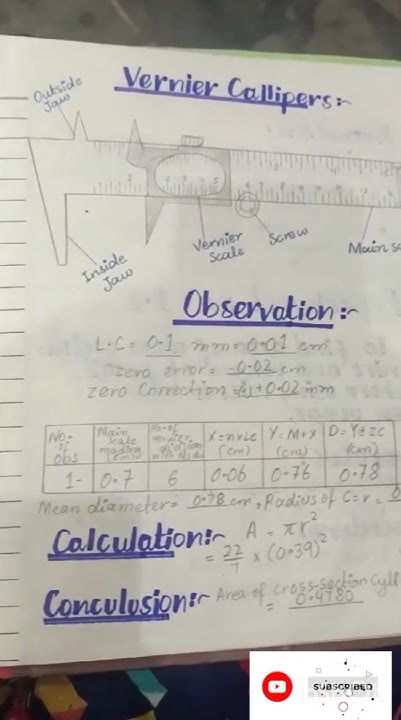 Vernier Callipers:-
Outside
Jaw
Inside
Jaw
Vernier
Scale
Screw
Main
Observation:-
L.C = 0.1 mm = 0.01 cm
zero error = -0.02 cm
zero Correction = +0.02 mm
No. of obs
Main scale reading
X = n×LC (cm)
Y = M+X (cm)
D = Y±ZC (cm)
1- 0.7 6 0.06 0.76 0.78
Mean diameter = 0.78 cm, Radius of C = r = 0
Calculation:- A = πr²
= 22/7 × (0.39)²
Conculusion:- Area of cross-section Cyli
= 0.4780
SUBSCRIBED